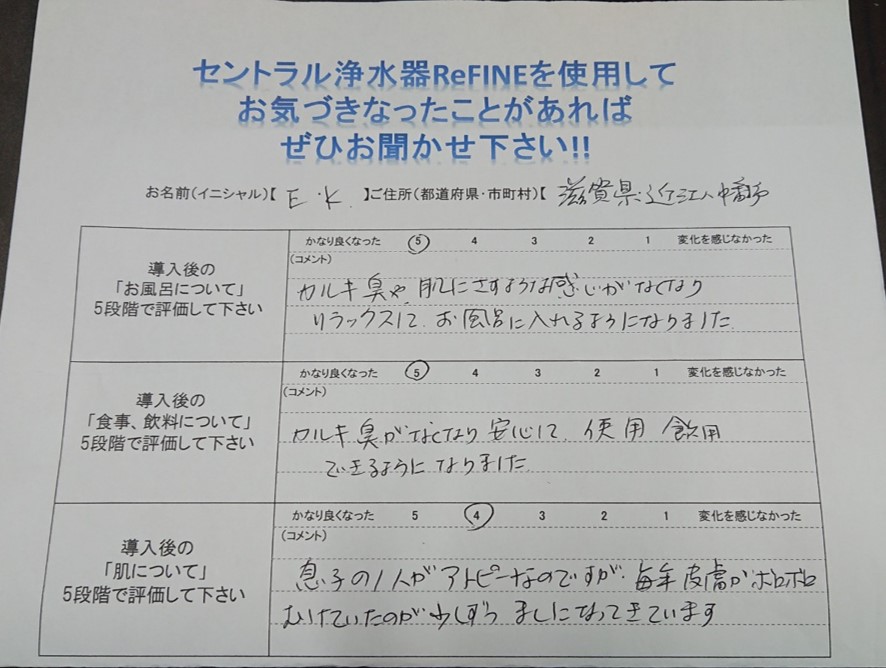 セントラル浄水器ReFINEを使用して
お気づきなったことがあれば
ぜひお聞かせ下さい!!
お名前(イニシャル)【 E・K 】ご住所(都道府県・市町村)【 滋賀県近江八幡市
導入後の
「お風呂について」
5段階で評価して下さい
かなり良くなった 5 4 3 2 1 変化を感じなかった
(コメント)
カルキ臭や、肌にさすような感じがなくなり
リラックスして、お風呂に入れるようになりました
導入後の
「食事、飲料について」
5段階で評価して下さい
かなり良くなった 5 4 3 2 1 変化を感じなかった
(コメント)
カルキ臭がなくなり安心して、使用 飲用
できるようになりました
導入後の
「肌について」
5段階で評価して下さい
かなり良くなった 5 4 3 2 1 変化を感じなかった
(コメント)
息子の1人がアトピーなのですが、毎年皮膚がボロボロ
むけていたのが少しずつ ましになってきています